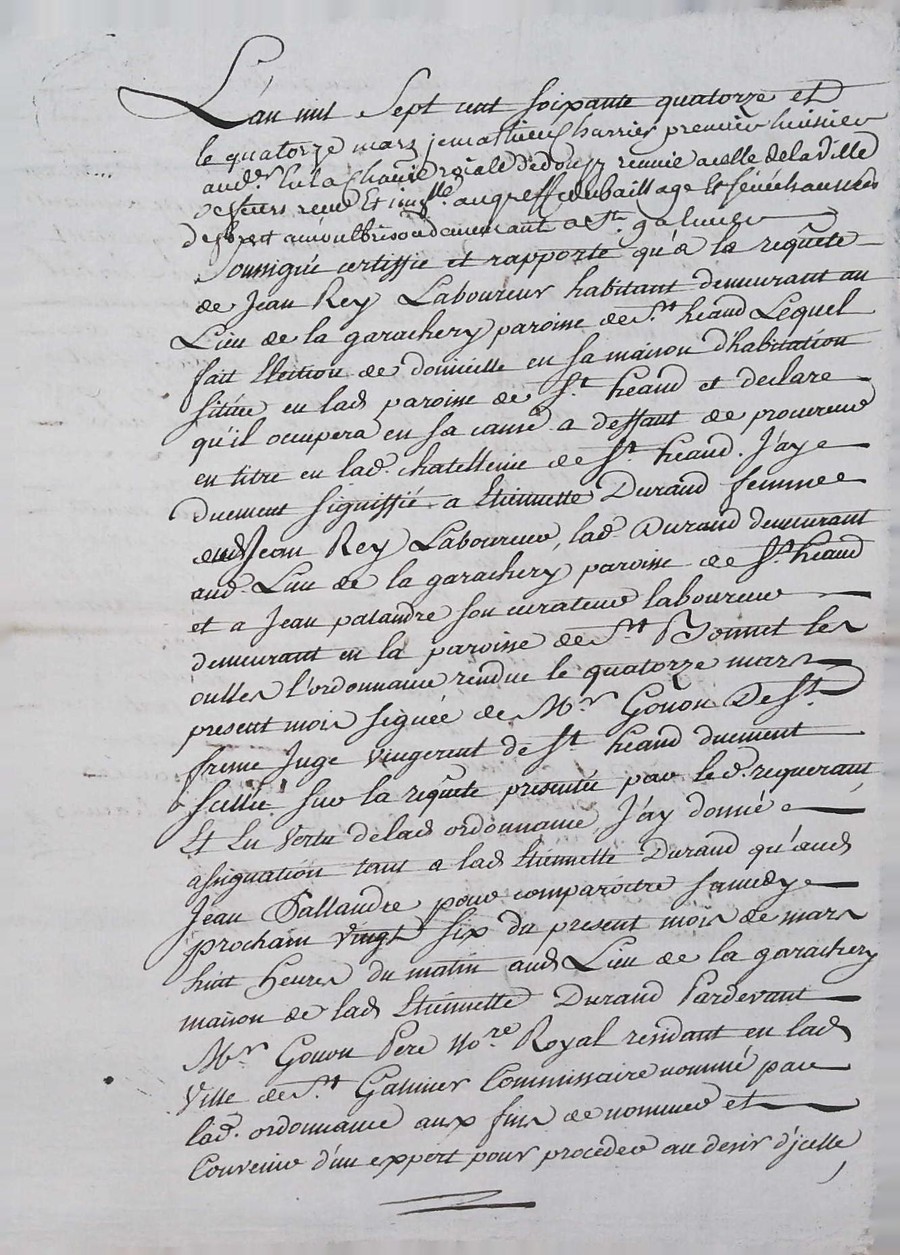 L'an mil Sept cent soixante quatorze et
le quatorze mars je mathieu Charrier premier huissier
aud. en la Chatnie royalle de donzy reunie a celle de la ville
de feurs receu Et im^lle au greffe du baillage Et sénéchaussée
demeurant a St. galmier
Soussigné certiffie et rapporte qu'a la requête
de Jean Rey Laboureur habitant demeurant au
Lieu de la garachery paroisse de St heand Lequel
fait Election de domicille en sa maison d'habitation
située en lad paroisse de St heand et declare
qu'il occupera en sa cause a deffaut de procureur
en titre en lad. chatellenie de St heand. J'aye
duement signiffié a Etiennette Durand femme
dud Jean Rey Laboureur, lad. Durand demeurant
aud. Lieu de la garachery paroisse de St heand
et a Jean palandre son curateur laboureur
demeurant en la paroisse de St Bonnet les
oulles l'ordonnance rendue le quatorze mars
present mois signée de Mr Gonon De St
freine Juge Vingerent de St heand duement
scellée sur la requête presentée par led. requerant
Et En Vertu de lad ordonnance J'ay donné
assignation tant a lad Etiennette Durand qu'aud
Jean Pallandre pour comparoitre samedy
prochain vingt six du present mois de mars
huit heures du matin aud Lieu de la garachery
maison de lad Etiennette Durand Pardevant
Mr Gonon Pere No^re Royal residant en lad
Ville de St Galmier Commissaire nommé par
lad. ordonnance aux fins de nommer et
Convenir d'un expert pour proceder au desir d'jcelle,